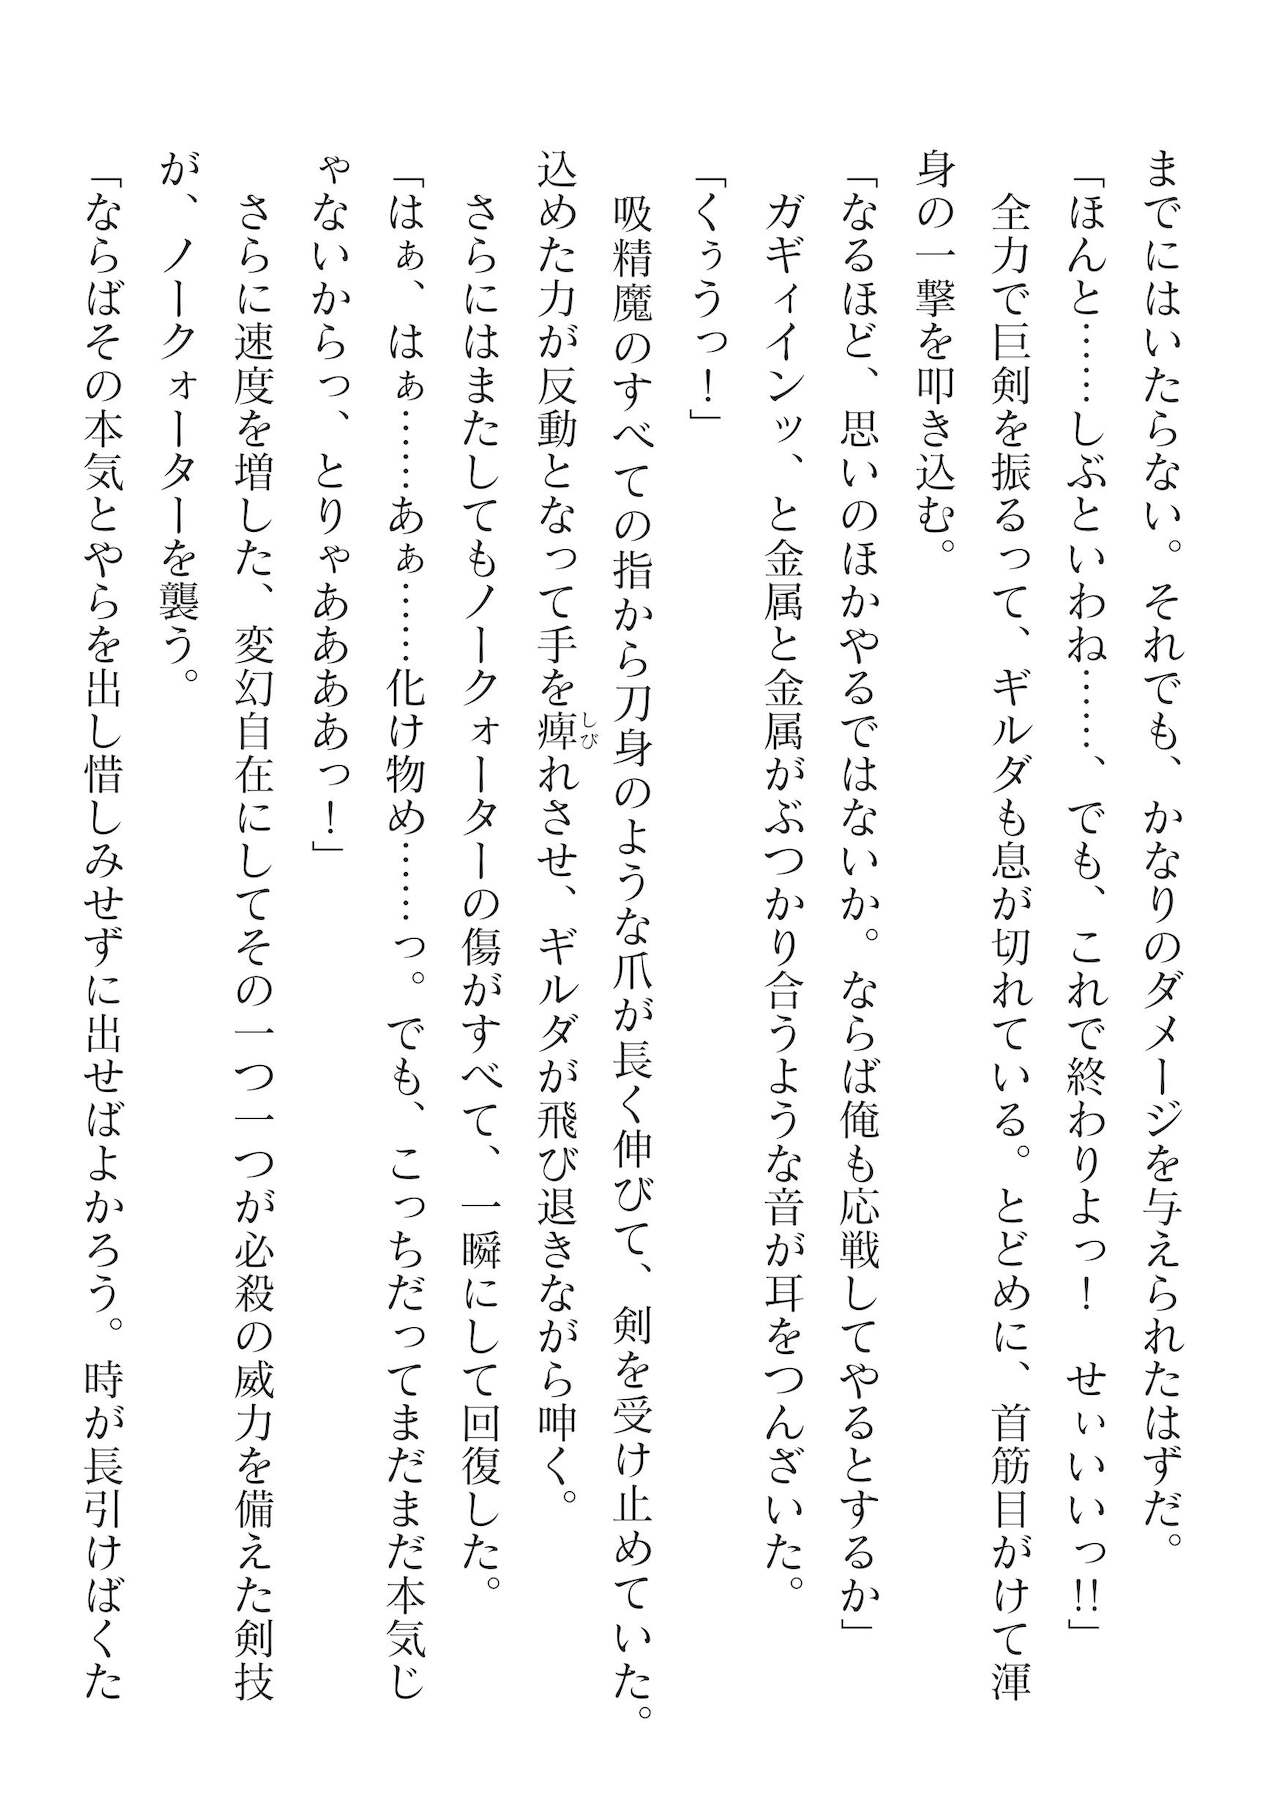 までにはいたらない。それでも、かなりのダメージを与えられたはずだ。
「ほんと……しぶといわね……、でも、これで終わりよっ！　せぃいいっ!!」
　全力で巨剣を振るって、ギルダも息が切れている。とどめに、首筋目がけて渾
身の一撃を叩き込む。
「なるほど、思いのほかやるではないか。ならば俺も応戦してやるとするか」
　ガギィインッ、と金属と金属がぶつかり合うような音が耳をつんざいた。
「くぅうっ！」
　吸精魔のすべての指から刀身のような爪が長く伸びて、剣を受け止めていた。
込めた力が反動となって手を痺しびれさせ、ギルダが飛び退きながら呻く。
　さらにはまたしてもノークォーターの傷がすべて、一瞬にして回復した。
「はぁ、はぁ……あぁ……化け物め……っ。でも、こっちだってまだまだ本気じ
ゃないからっ、とりゃああああっ！」
　さらに速度を増した、変幻自在にしてその一つ一つが必殺の威力を備えた剣技
が、ノークォーターを襲う。
「ならばその本気とやらを出し惜しみせずに出せばよかろう。時が長引けばくた